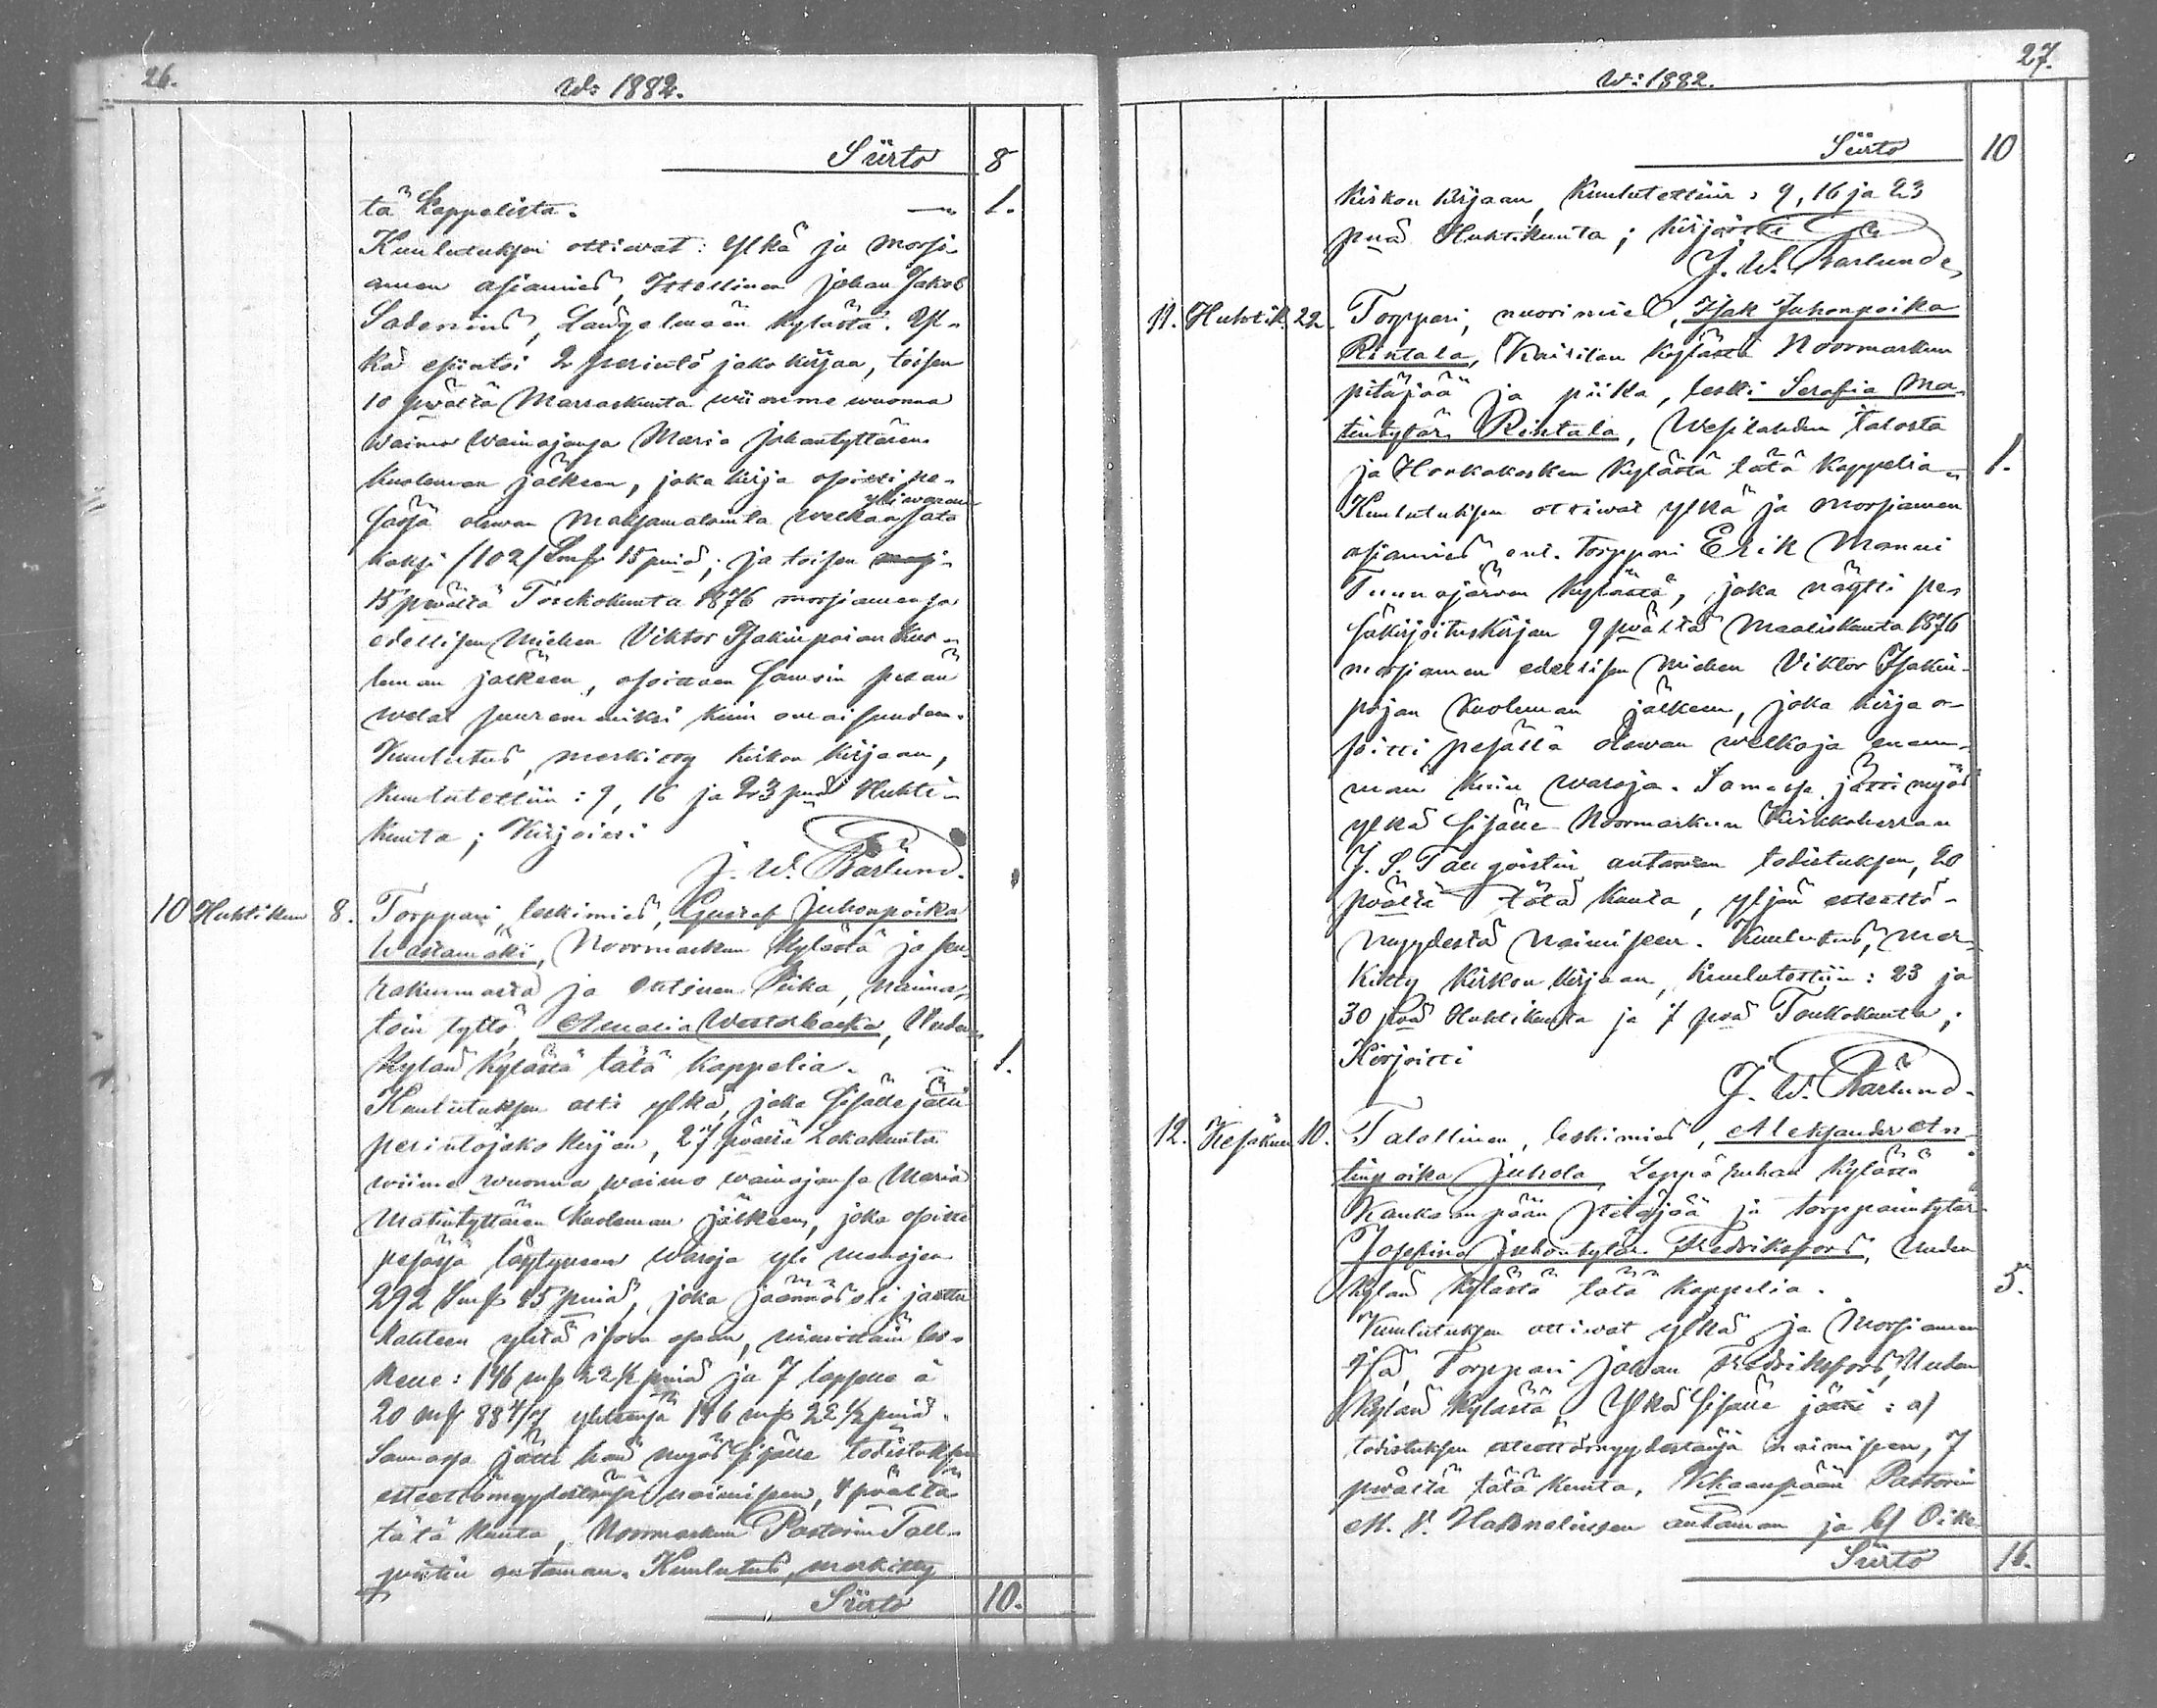 26.
W: 1882.
Siirto 8
tä Kappelista. — 1.
Kuulutuksen ottiwat: Ylkä ja morsi-
amen asiamies, Itsellinen Johan Jakob
Sadenius, Längelmään kylästä. Yl-
kä esiintoi 2 perintö jako kirjaa, toisen
10 pwältä Marraskuuta wiimme wuonna
waimo wainajansa Maria Johantyttären
kuoleman jälkeen, joka kirja osoitti pe-
säsä olewan maksamatointa welkaa yli warain sata
kaksi /102/ Smk 15 pniä; ja toisen
15 pwältä Toukokuuta 1876 morsiamensa
edellisen miehen Viktor Isakinpoian kuo-
leman jälkeen, osoittaen samoin pesän
welat suuremmiksi kuin omaisuuden.
Kuulutus, merkitty kirkon kirjaan,
kuulutettiin: 9, 16 ja 23 pnä Huhti-
kuuta; Kirjoitti
J. W. Barlund.
10 Huhtikuu 8. Torppari, leskimies, Gustaf Juhonpoika
Wastamäki, Noormarkun kylästä ja seu-
rakunnasta ja entinen Piika, naima-
toin tyttö, Amalia Westerbacka, Uuden
Kylän kylästä tätä kappelia. 1.
Kuulutuksen otti ylkä, joka sisälle jätti
perintöjako kirjan, 27 pwältä Lokakuuta
wiime wuonna waimo wainajansa Maria
Matintyttären kuoleman jälkeen, joka osoitti
pesäsä löytyneen waroja yli menojen
292 Smk 45 pniä, joka jäännös oli jaettu
kahteen yhtä isoon osaan, nimittäin les-
kelle: 146 mk 22½ pniä ja 7 lapselle à
20 mk 88 4/7 yhteensä 146 mk 22½ pniä.
Samassa jätti hän myös sisälle todistuksen
esteettömyydestänsä naimiseen, 4 pwältä
tätä kuuta, Noormarkun Pastorin Tall-
qwistin antaman. Kuulutus, merkitty
Siirto 10.
27.
W: 1882.
Siirto 10
kirkon kirjaan, kuulutettiin: 9, 16 ja 23
pnä Huhtikuuta; kirjoitti
J. W. Barlund
11. Huhtik. 22. Torppari, nuorimies, Isak Juhonpoika
Rintala, Kairilan kylästä Noormarkun
pitäjää ja piika, leski Serafia Ma-
tintytär Rintala, Wesilahden talosta
ja Honkakosken kylästä tätä kappelia. 1.
Kuulutuksen ottiwat ylkä ja morsiamen
asiamies ent. torppari Erik Manni
Tuunajärven kylästä, joka näytti pe-
säkirjoituskirjan 9 pwältä Maaliskuuta 1876
morsiamen edellisen miehen Viktor Isakin-
pojan kuoleman jälkeen, joka kirja o-
soitti pesällä olewan welkoja enem-
män kuin waroja. Samassa jätti myös
ylkä sisälle Noormarkun Kirkkoherran
J. S. Tallqvistin antaman todistuksen, 20
pwältä tätä kuuta, yljän esteettö-
myydestä naimiseen. Kuulutus, mer-
kitty kirkon kirjaan, kuulutettiin: 23 ja
30 pnä Huhtikuuta ja 7 pnä Toukokuuta;
Kirjoitti
J. W. Barlund.
12. Kesäkuu 10. Talollinen, leskimies, Aleksander An-
tinpoika Juhola, Leppäruhan kylästä
Kankaanpään pitäjää ja torpparintytär
Josefina Juhontytär Fredriksfors, Uuden
Kylän kylästä tätä kappelia. 5.
Kuulutuksen ottiwat ylkä ja Morsiamen
Isä, Torppari Johan Fredriksfors, Uuden
Kylän kylästä, Ylkä sisälle jätti: a)
todistuksen esteettömyydestänsä naimiseen, 7
pwältä tätä kuuta, Kankaanpään Pastorin
antaman ja b) Oike-
Siirto 16.